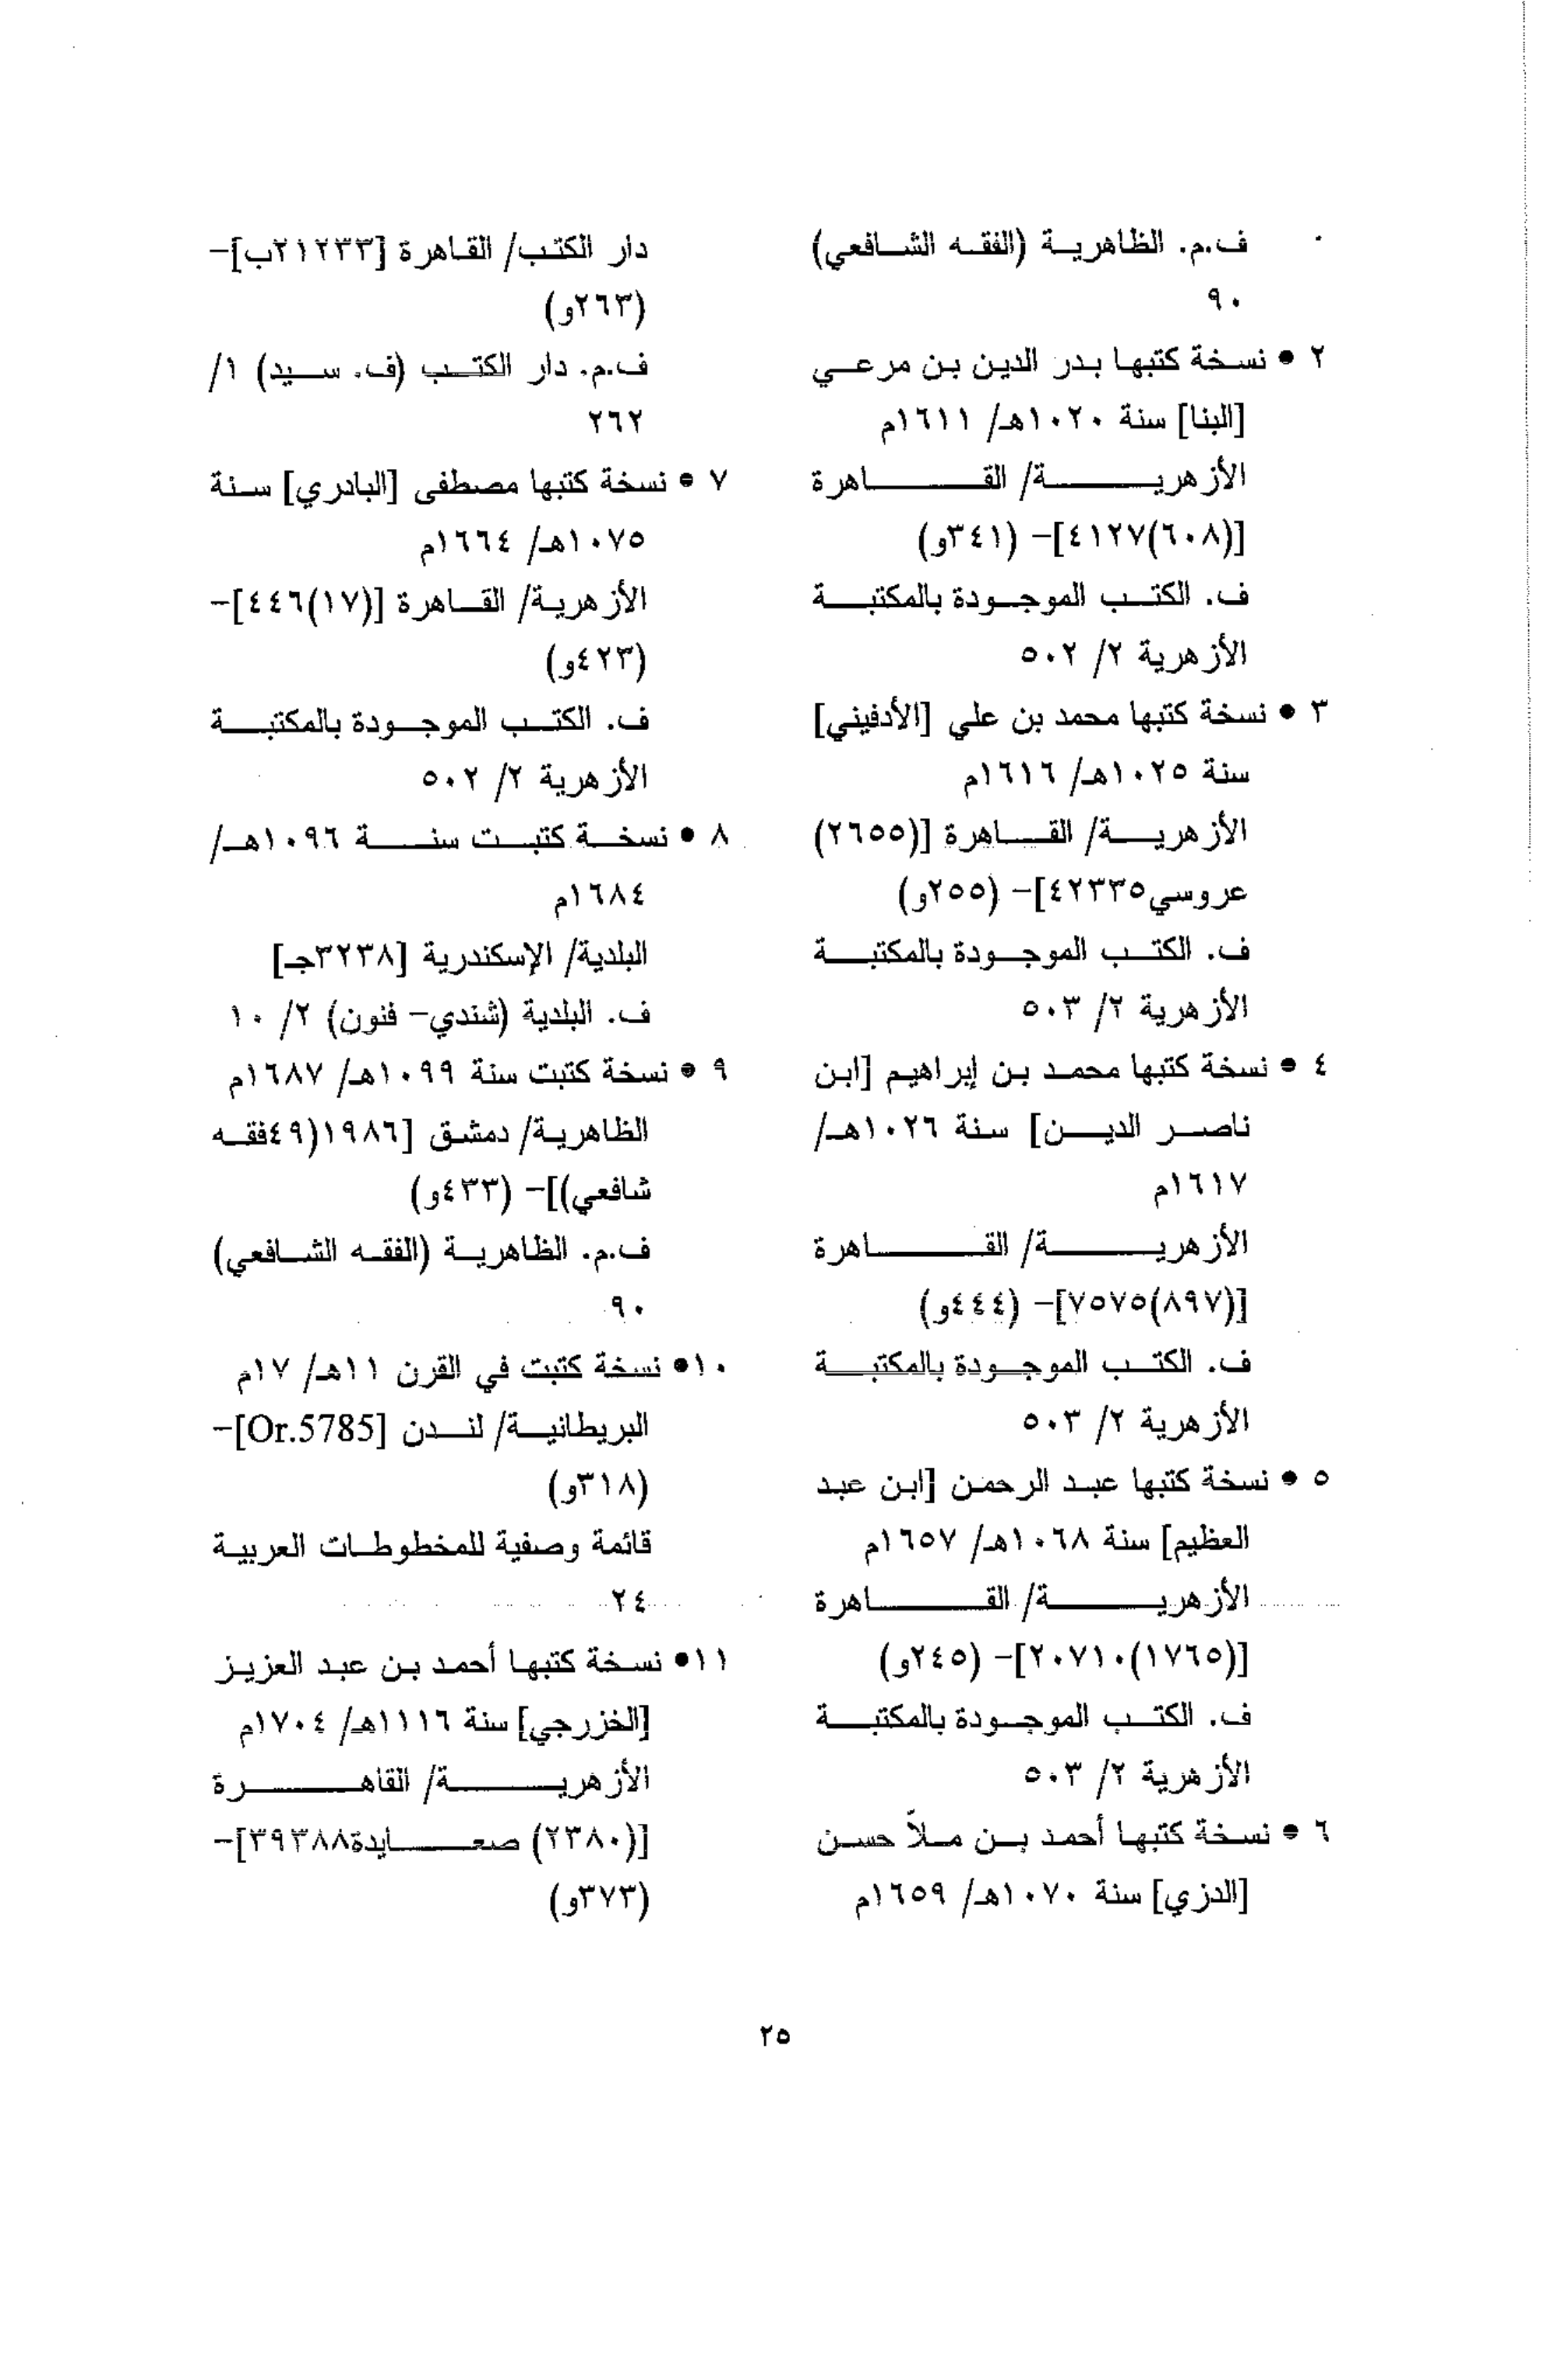 ف.م. الظاهرية (الفقه الشافعي)
٩٠
٢ • نسخة كتبها بدر الدين بن مرعي
[البنا] سنة ١٠٢٠هـ/ ١٦١١م
الأزهرية/ القاهرة
[(٦٠٨)٤١٢٧]- (٣٤١و)
ف. الكتب الموجودة بالمكتبة
الأزهرية ٢/ ٥٠٢
٣ • نسخة كتبها محمد بن علي [الأدفيني]
سنة ١٠٢٥هـ/ ١٦١٦م
الأزهرية/ القاهرة [(٢٦٥٥)
عروسي٤٢٣٣٥]- (٢٥٥و)
ف. الكتب الموجودة بالمكتبة
الأزهرية ٢/ ٥٠٣
٤ • نسخة كتبها محمد بن إبراهيم [ابن
ناصر الدين] سنة ١٠٢٦هـ/
١٦١٧م
الأزهرية/ القاهرة
[(٨٩٧)٧٥٧٥]- (٤٤٤و)
ف. الكتب الموجودة بالمكتبة
الأزهرية ٢/ ٥٠٣
٥ • نسخة كتبها عبد الرحمن [ابن عبد
العظيم] سنة ١٠٦٨هـ/ ١٦٥٧م
الأزهرية/ القاهرة
[(١٧٦٥)٢٠٧١٠]- (٢٤٥و)
ف. الكتب الموجودة بالمكتبة
الأزهرية ٢/ ٥٠٣
٦ • نسخة كتبها أحمد بن ملاّ حسن
[الدزي] سنة ١٠٧٠هـ/ ١٦٥٩م
دار الكتب/ القاهرة [٢١٢٣٣ب]-
(٢٦٣و)
ف.م. دار الكتب (ف. سيد) ١/
٢٦٢
٧ • نسخة كتبها مصطفى [البادري] سنة
١٠٧٥هـ/ ١٦٦٤م
الأزهرية/ القاهرة [(١٧)٤٤٦]-
(٤٢٣و)
ف. الكتب الموجودة بالمكتبة
الأزهرية ٢/ ٥٠٢
٨ • نسخة كتبت سنة ١٠٩٦هـ/
١٦٨٤م
البلدية/ الإسكندرية [٣٢٣٨جـ]
ف. البلدية (شندي- فنون) ٢/ ١٠
٩ • نسخة كتبت سنة ١٠٩٩هـ/ ١٦٨٧م
الظاهرية/ دمشق [١٩٨٦(٤٩فقه
شافعي)]- (٤٣٣و)
ف.م. الظاهرية (الفقه الشافعي)
٩٠
١٠• نسخة كتبت في القرن ١١هـ/ ١٧م
البريطانية/ لندن [Or.5785]-
(٣١٨و)
قائمة وصفية للمخطوطات العربية
٢٤
١١• نسخة كتبها أحمد بن عبد العزيز
[الخزرجي] سنة ١١١٦هـ/ ١٧٠٤م
الأزهرية/ القاهرة
[(٢٣٨٠) صعايدة٣٩٣٨٨]-
(٣٧٣و)
٢٥